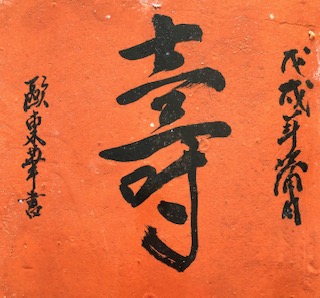 戊戌年蒲月
壽
歐東華書